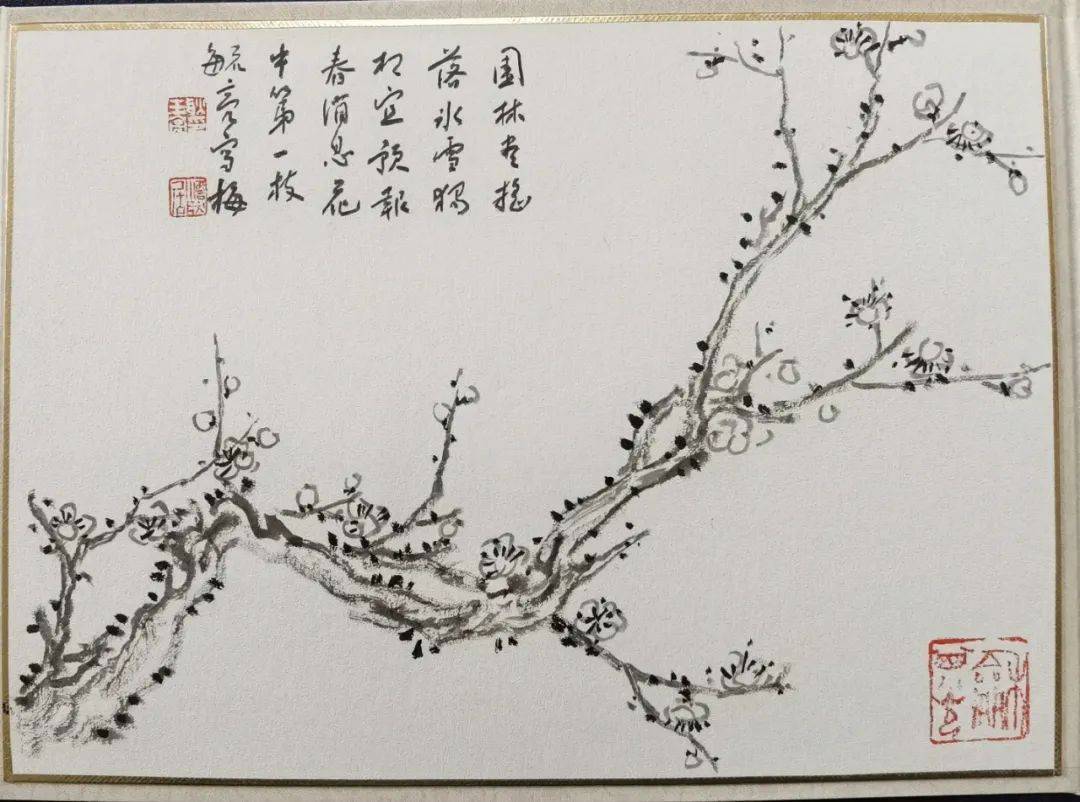 園林盡搖
落冰雪獨
相宜預報
春消息花
中第一枝
毓亮寫梅